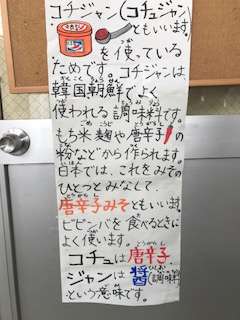 コチジャン(コチュジャン
ともいいます。)
を使っている
ためです。コチジャンは
韓国朝鮮でよく
使われる調味料です。
もち米麹や唐辛子の
粉などから作られます。
日本では、これをみその
ひとつとみなして、
唐辛子みそともいいます。
ビビンバを食べるときに
よく使います。
コチュは唐辛子、
ジャンは醬(調味料)
という意味です。